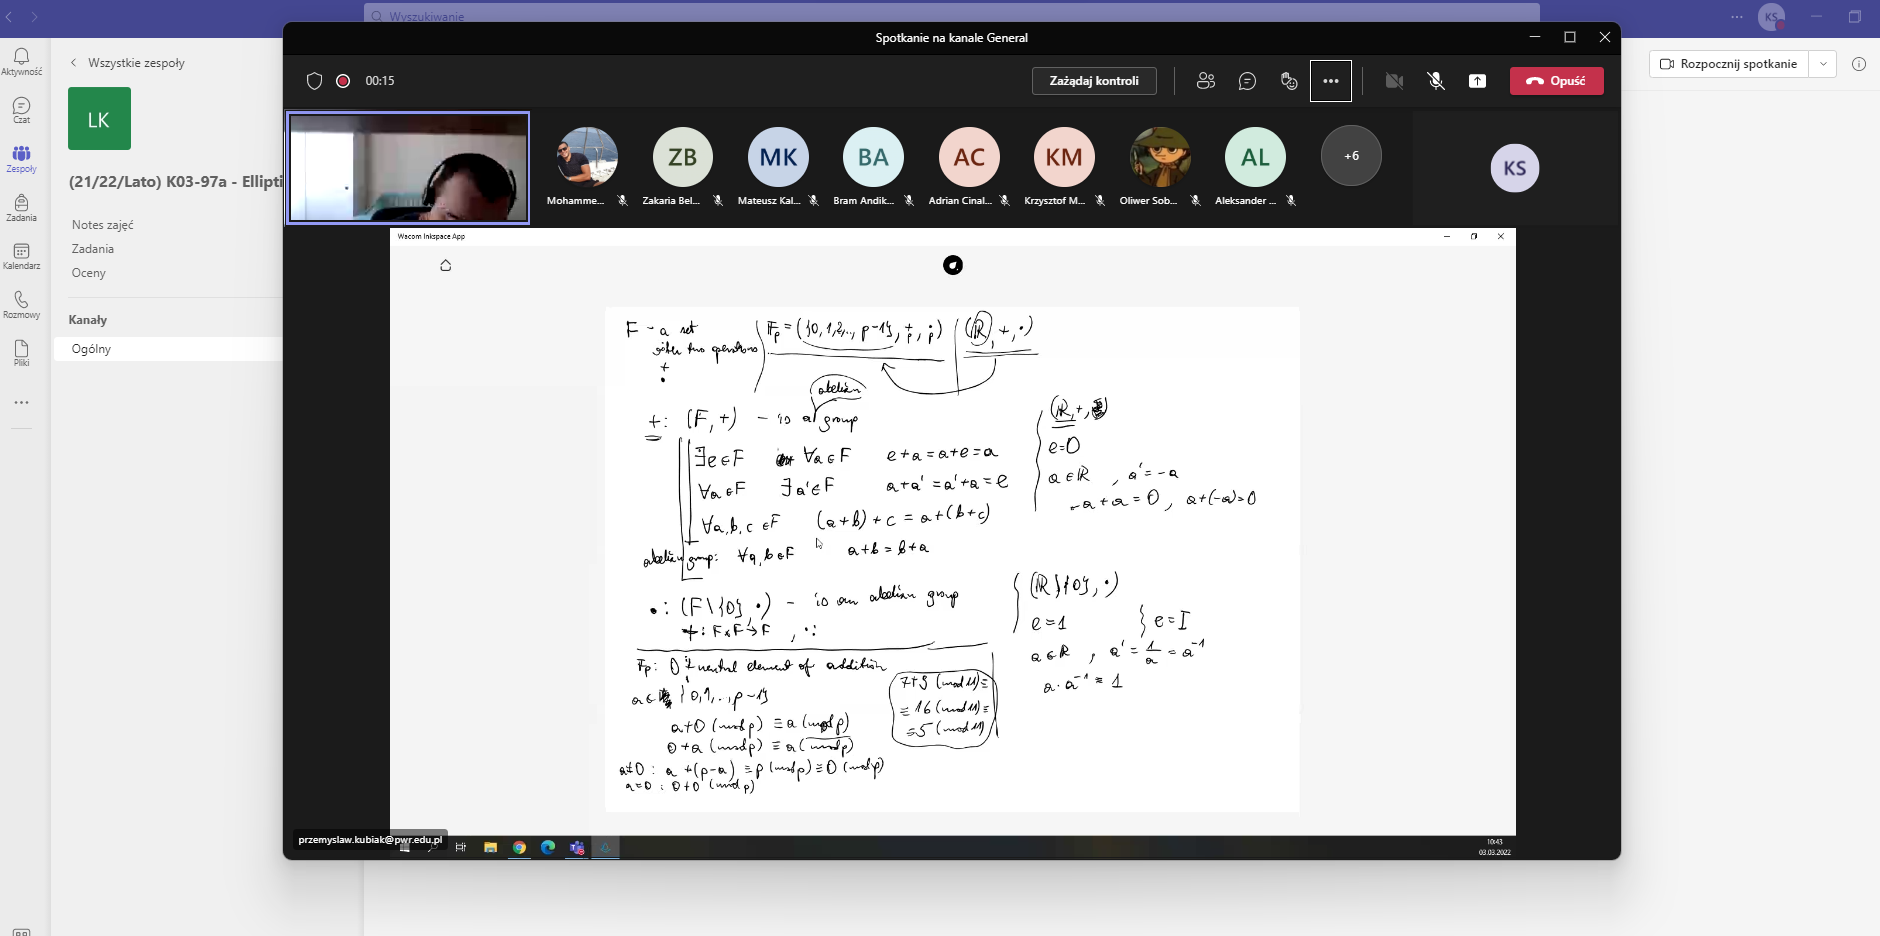 Wyszukiwanie
KS
Aktywność
Czat
Zespoły
Zadania
Kalendarz
Rozmowy
Pliki
Wszystkie zespoły
LK
(21/22/Lato) K03-97a - Ellipti
Notes zajęć
Zadania
Oceny
Kanały
Ogólny
Rozpocznij spotkanie
Spotkanie na kanale General
00:15
Zażądaj kontroli
Opuść
ZB
MK
BA
AC
KM
AL
+6
KS
Mohamme...
Zakaria Bel...
Mateusz Kal...
Bram Andik...
Adrian Cinal...
Krzysztof M...
Oliwer Sob...
Aleksander ...
Wacom Inkspace App
F - a set
with two operations
+
•
𝔽p = ({0,1,2,.., p-1}, +p, ·p)
(ℝ, +, ·)
abelian
+: (F, +) - is a group
∃e∈F ∀a∈F e+a=a+e=a
∀a∈F ∃a'∈F a+a'=a'+a=e
∀a,b,c∈F (a+b)+c=a+(b+c)
abelian group: ∀a,b∈F a+b=b+a
(ℝ, +,
e=0
a∈ℝ, a'=-a
-a+a=0, a+(-a)=0
•: (F\{0}, •) - is an abelian group
+: F×F→F, •:
(ℝ\{0}, •)
e=1
e=I
a∈ℝ, a'=1/a=a⁻¹
a·a⁻¹=1
𝔽p: 0 neutral element of addition
a∈ {0,1,..,p-1}
a+0 (mod p) ≡ a (mod p)
0+a (mod p) ≡ a (mod p)
a≠0: a+(p-a) ≡ p (mod p) ≡ 0 (mod p)
a=0: 0+0 (mod p)
7+9 (mod 11) ≡
≡ 16 (mod 11) ≡
≡ 5 (mod 11)
przemyslaw.kubiak@pwr.edu.pl
10:43
03.03.2022